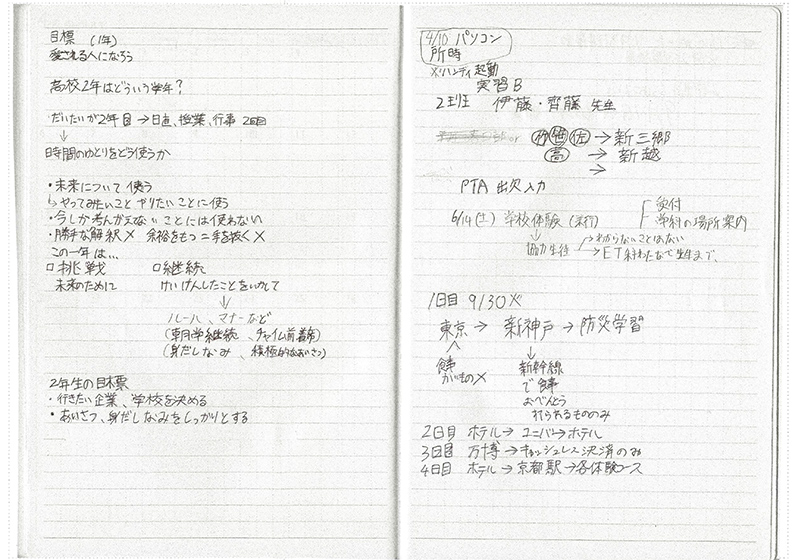 目標 (1年)
愛される人になろう
高校2年はどういう学年?
・だいたいが2年目→日直、授業、行事 2回目
↓
時間のゆとりをどう使うか
・未来について 使う
↳やってみたいこと やりたいことに使う
・今しか考えない ことには使わない
・勝手な解釈× 余裕をもつ=手を抜く×
この一年は…
□挑戦 □継続
未来のために けいけんしたことをいかして
↓
ルール、マナーなど
(朝学継続、チャイム前着席)
(身だしなみ、積極的なあいさつ)
2年生の目標
・行きたい企業、学校を決める
・あいさつ、身だしなみをしっかりとする
4/10 パソコン
所時
※ハンディ起動
実習B
2班 伊藤・齊藤 先生
or 竹 笹 佐 →新三郷
高 → 新越
→
PTA 出欠 入力
6/14(土) 学校体験 (来行) 受付
学科の場所案内
↓
協力生徒 →わからないことはない
→ET
1日目 9/30火
東京→ 新神戸→防災学習
食事 新幹線
かいもの× で食事
おべんとう
のみ
2日目 ホテル→ユニバ→ホテル
3日目 万博→キャッシュレス決済のみ
4日目 ホテル→京都駅→各体験コース